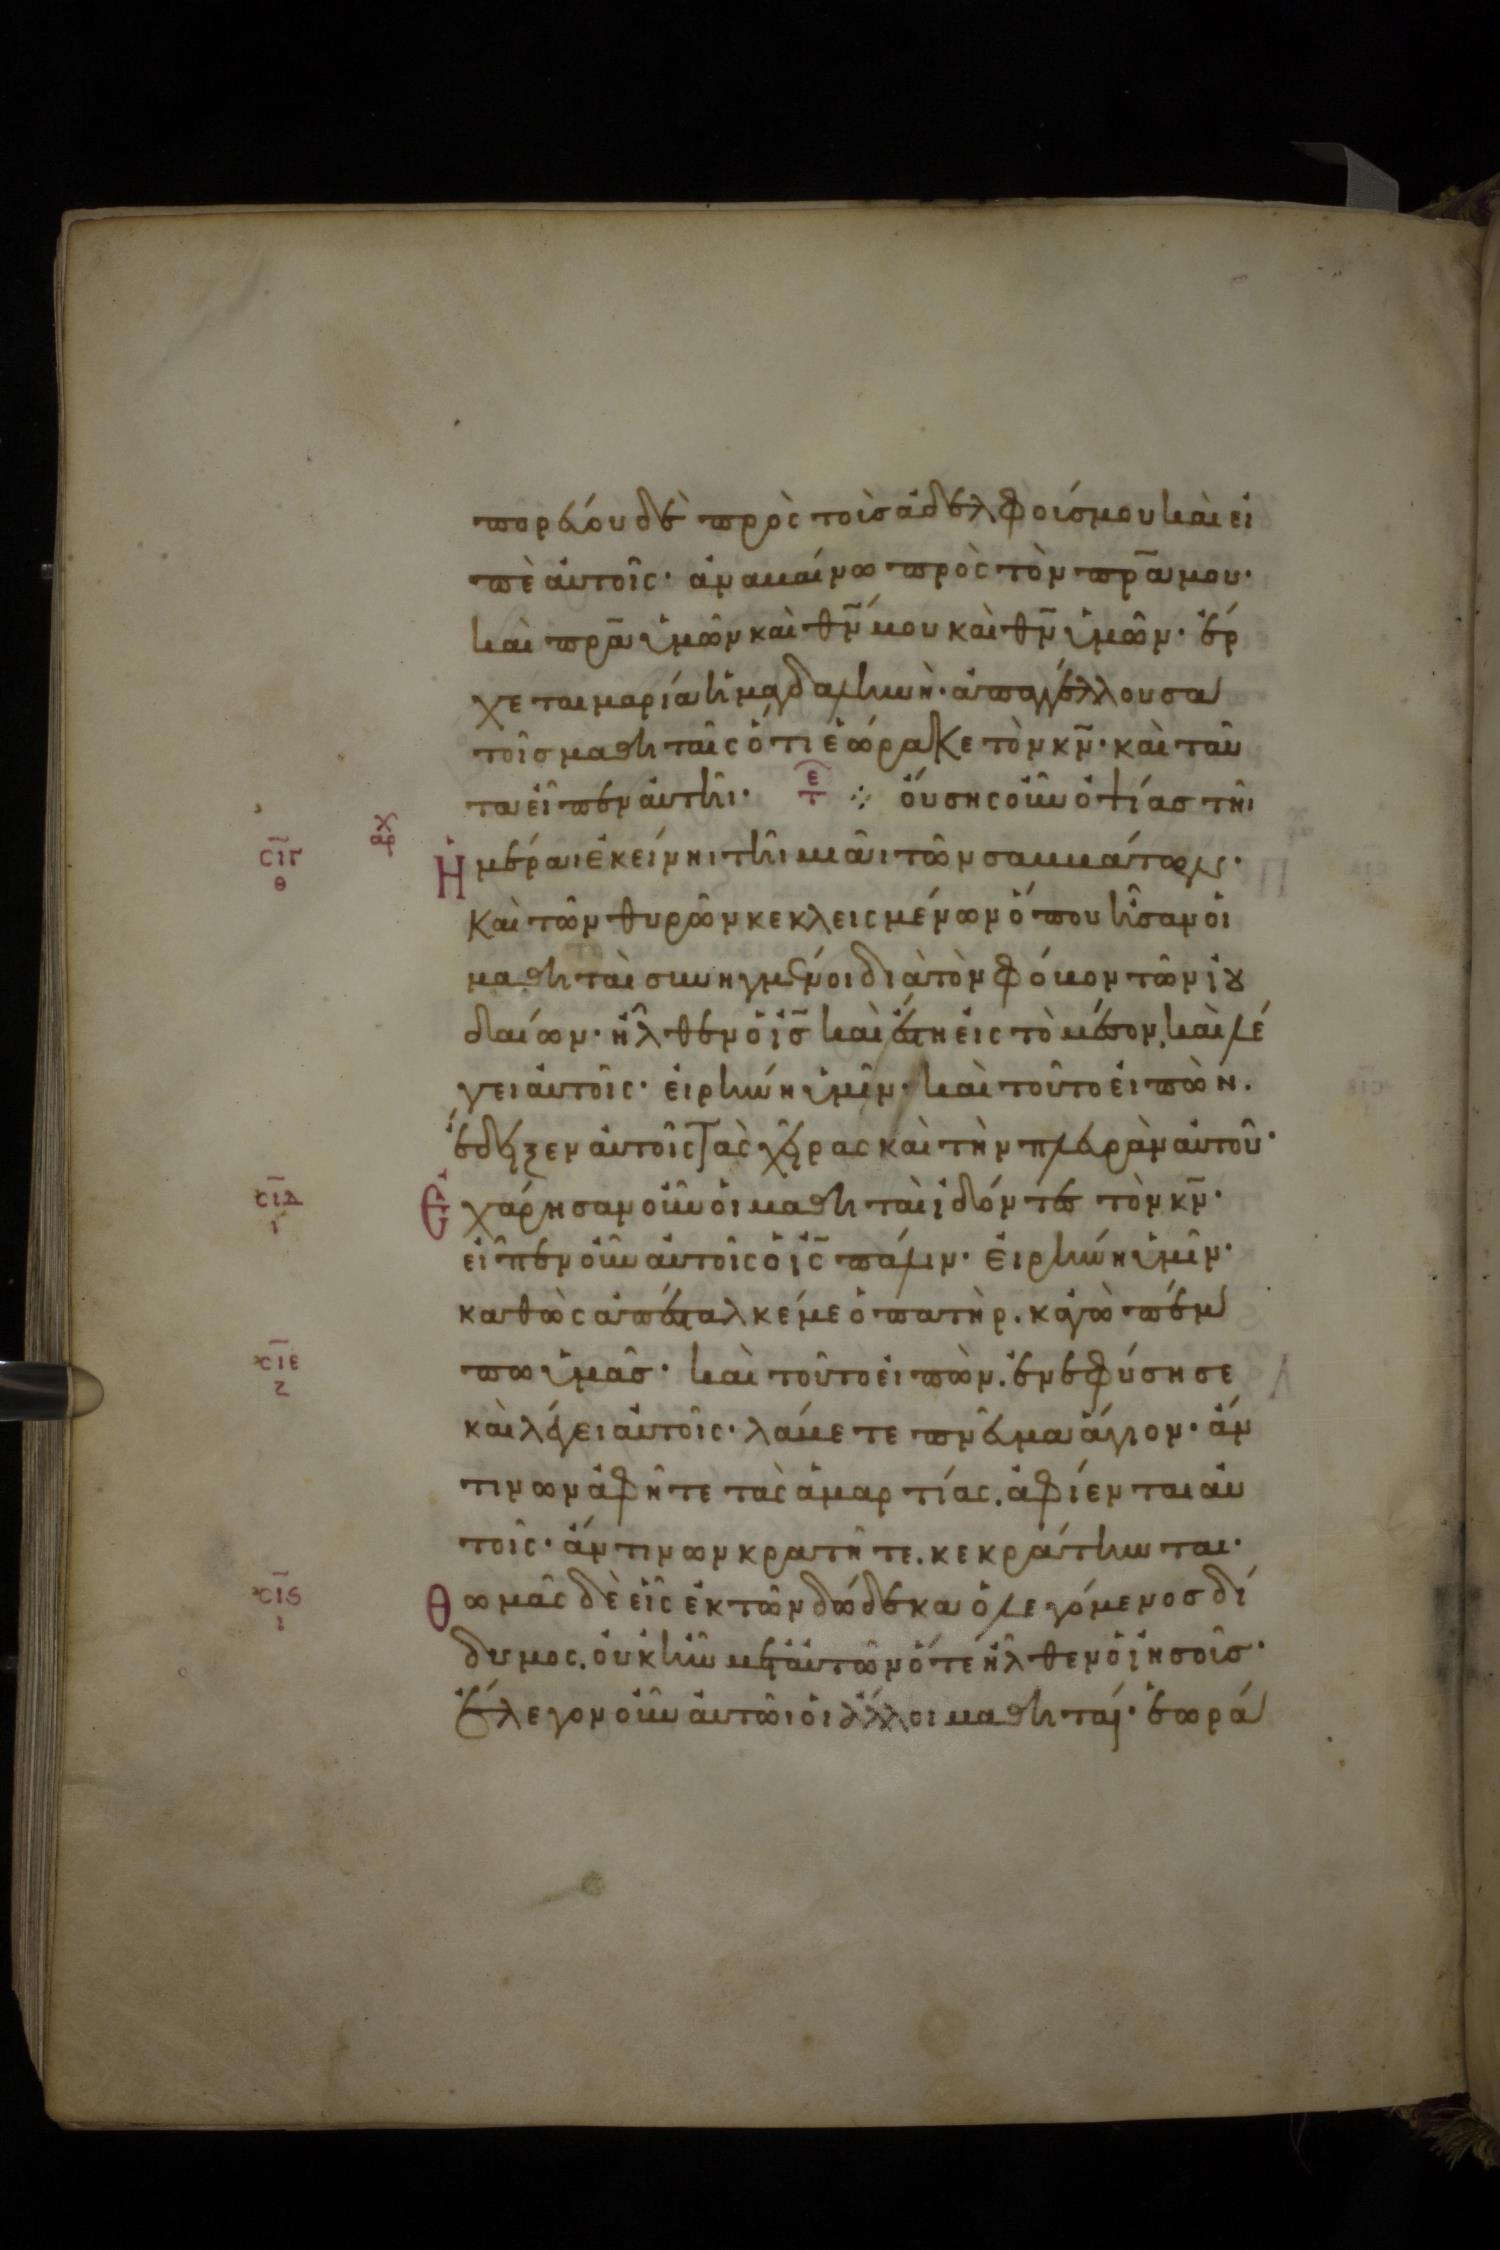 πορεύου δὲ πρὸς τοὺσ ἀδελφούσ μου καὶ εἰ
πὲ ἀυτοῖς· ἀναβαίνω πρὸς τὸν πρ̅α μου·
καὶ πρ̅α ὑμῶν καὶ θν̅ μου καὶ θν̅ ὑμῶν· ἔρ
χεται μαρία ἡ μαγδαληνὴ· ἀπαγγέλλουσα
τοῖσ μαθηταῖς ὅτι ἑώρακε τὸν κν̅· καὶ ταῦ
τα εἶπεν ἀυτῆι· ε τ ⁘ ὄυσης οὖν ὀψίας τῆι
χ αρ
σιγ̅ θ
Ἡμέραι ἐκείνηι τῆι μιᾶι τῶν σαββάτων·
καὶ τῶν θυρῶν κεκλεισμένων ὅπου ἦσαν οἱ
μαθηταὶ συνηγμένοι διὰ τὸν φόβον τῶν ἰου
δαίων· ἦλθεν ὁ ἰσ̅ καὶ ἔστη εἰς τὸ μέσον, καὶ λέ
γει ἀυτοῖς· εἰρήνη ὑμῖν· καὶ τοῦτο εἰπὼν.
ἔδειξεν ἀυτοῖς τὰς χεῖρας καὶ τὴν πλευρὰν ἀυτοῦ·
σιδ̅ ι
Ἐχάρησαν οὖν οἱ μαθηταὶ ἰδόντες τὸν κν̅·
εἶπεν οὖν ἀυτοῖς ὁ ἰς̅ πάλιν· εἰρήνη ὑμῖν·
καθὼς ἀπέσταλκέ με ὁ πατὴρ. κἀγὼ πέμ
σιε̅ ζ
πω ὑμᾶσ· καὶ τοῦτο εἰπὼν. ἐνεφύσησε
καὶ λέγει ἀυτοῖς· λάβετε πν̅ευμα ἅγιον· ἄν
τινων ἀφῆτε τὰς ἁμαρτίας. ἀφίενται ἀυ
τοῖς· ἄν τινων κρατῆτε. κεκράτηνται·
σις̅ ι
Θωμᾶς δὲ εἷς ἐκ τῶν δώδεκα ὁ λεγόμενοσ δί
δυμος. ὀυκ ἦν μετ ἀυτῶν ὅτε ἦλθεν ὁ ἰησοῦσ·
ἔλεγον οὖν ἀυτῶι οἱ ἄλλοι μαθηταί· ἑωρά